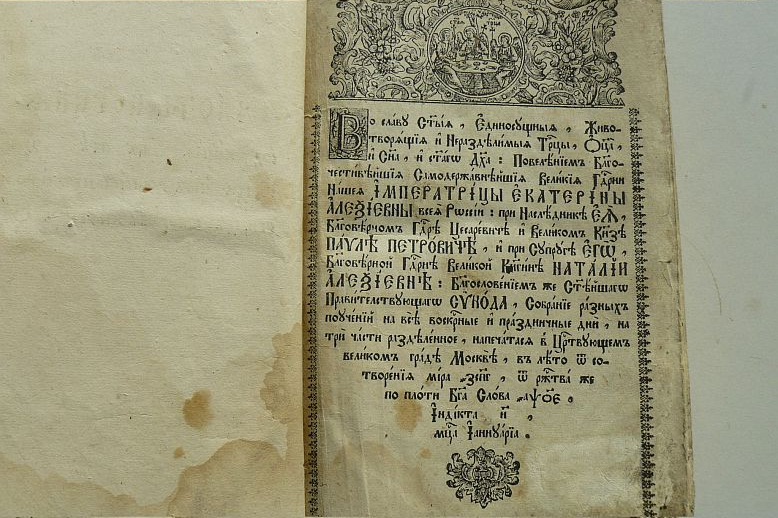 Во славу Ст҃ыѧ, Єдиносущныѧ, Живо-
творѧщїѧ и҆ Нераздѣлимыѧ Трⷪ҇цы, Ѻ҆ц҃а̀,
и҆ Сн҃а, и҆ ст҃а́гѡ Дх҃а: Повелѣнїемъ Бл҃го-
честивѣйшїѧ Самодержавнѣйшїѧ Великїѧ Гдⷭ҇рни
Нашеѧ ІМПЕРАТРІЦЫ ЄКАТЕРІНЫ
АЛЕѮІЕВНЫ всеѧ Рѡссїи: при Наслѣдникѣ ЄѦ̀,
Бл҃говѣрномъ Гдⷭ҇рѣ Цесаревичѣ и҆ Великомъ Кн҃зѣ
ПАѴЛѢ ПЕТРОВИЧѢ, и҆ при Супругѣ ЄГѠ̀,
Бл҃говѣрной Гдⷭ҇рнѣ Великой Кн҃гинѣ НАТАЛІИ
АЛЕѮІЕВНѢ: Бл҃гословенїемъ же Ст҃ѣйшагѡ
Правителствующагѡ СѴНОДА, Собранїе разныхъ
поученїй на всѣ воскрⷭ҇ные и҆ праздничные дни̑, на
три̑ части раздѣленное, напечатасѧ в̾ Црⷭ҇твующемъ
великомъ градѣ Москвѣ, въ лѣто ѿ со-
творенїѧ мїра ҂зс҃пг, ѿ ржⷭ҇тва же
по плоти Бг҃а Слова ҂аѱо҃є,
І҆ндїкта и҃,
мцⷭ҇а І҆аннуарїа.